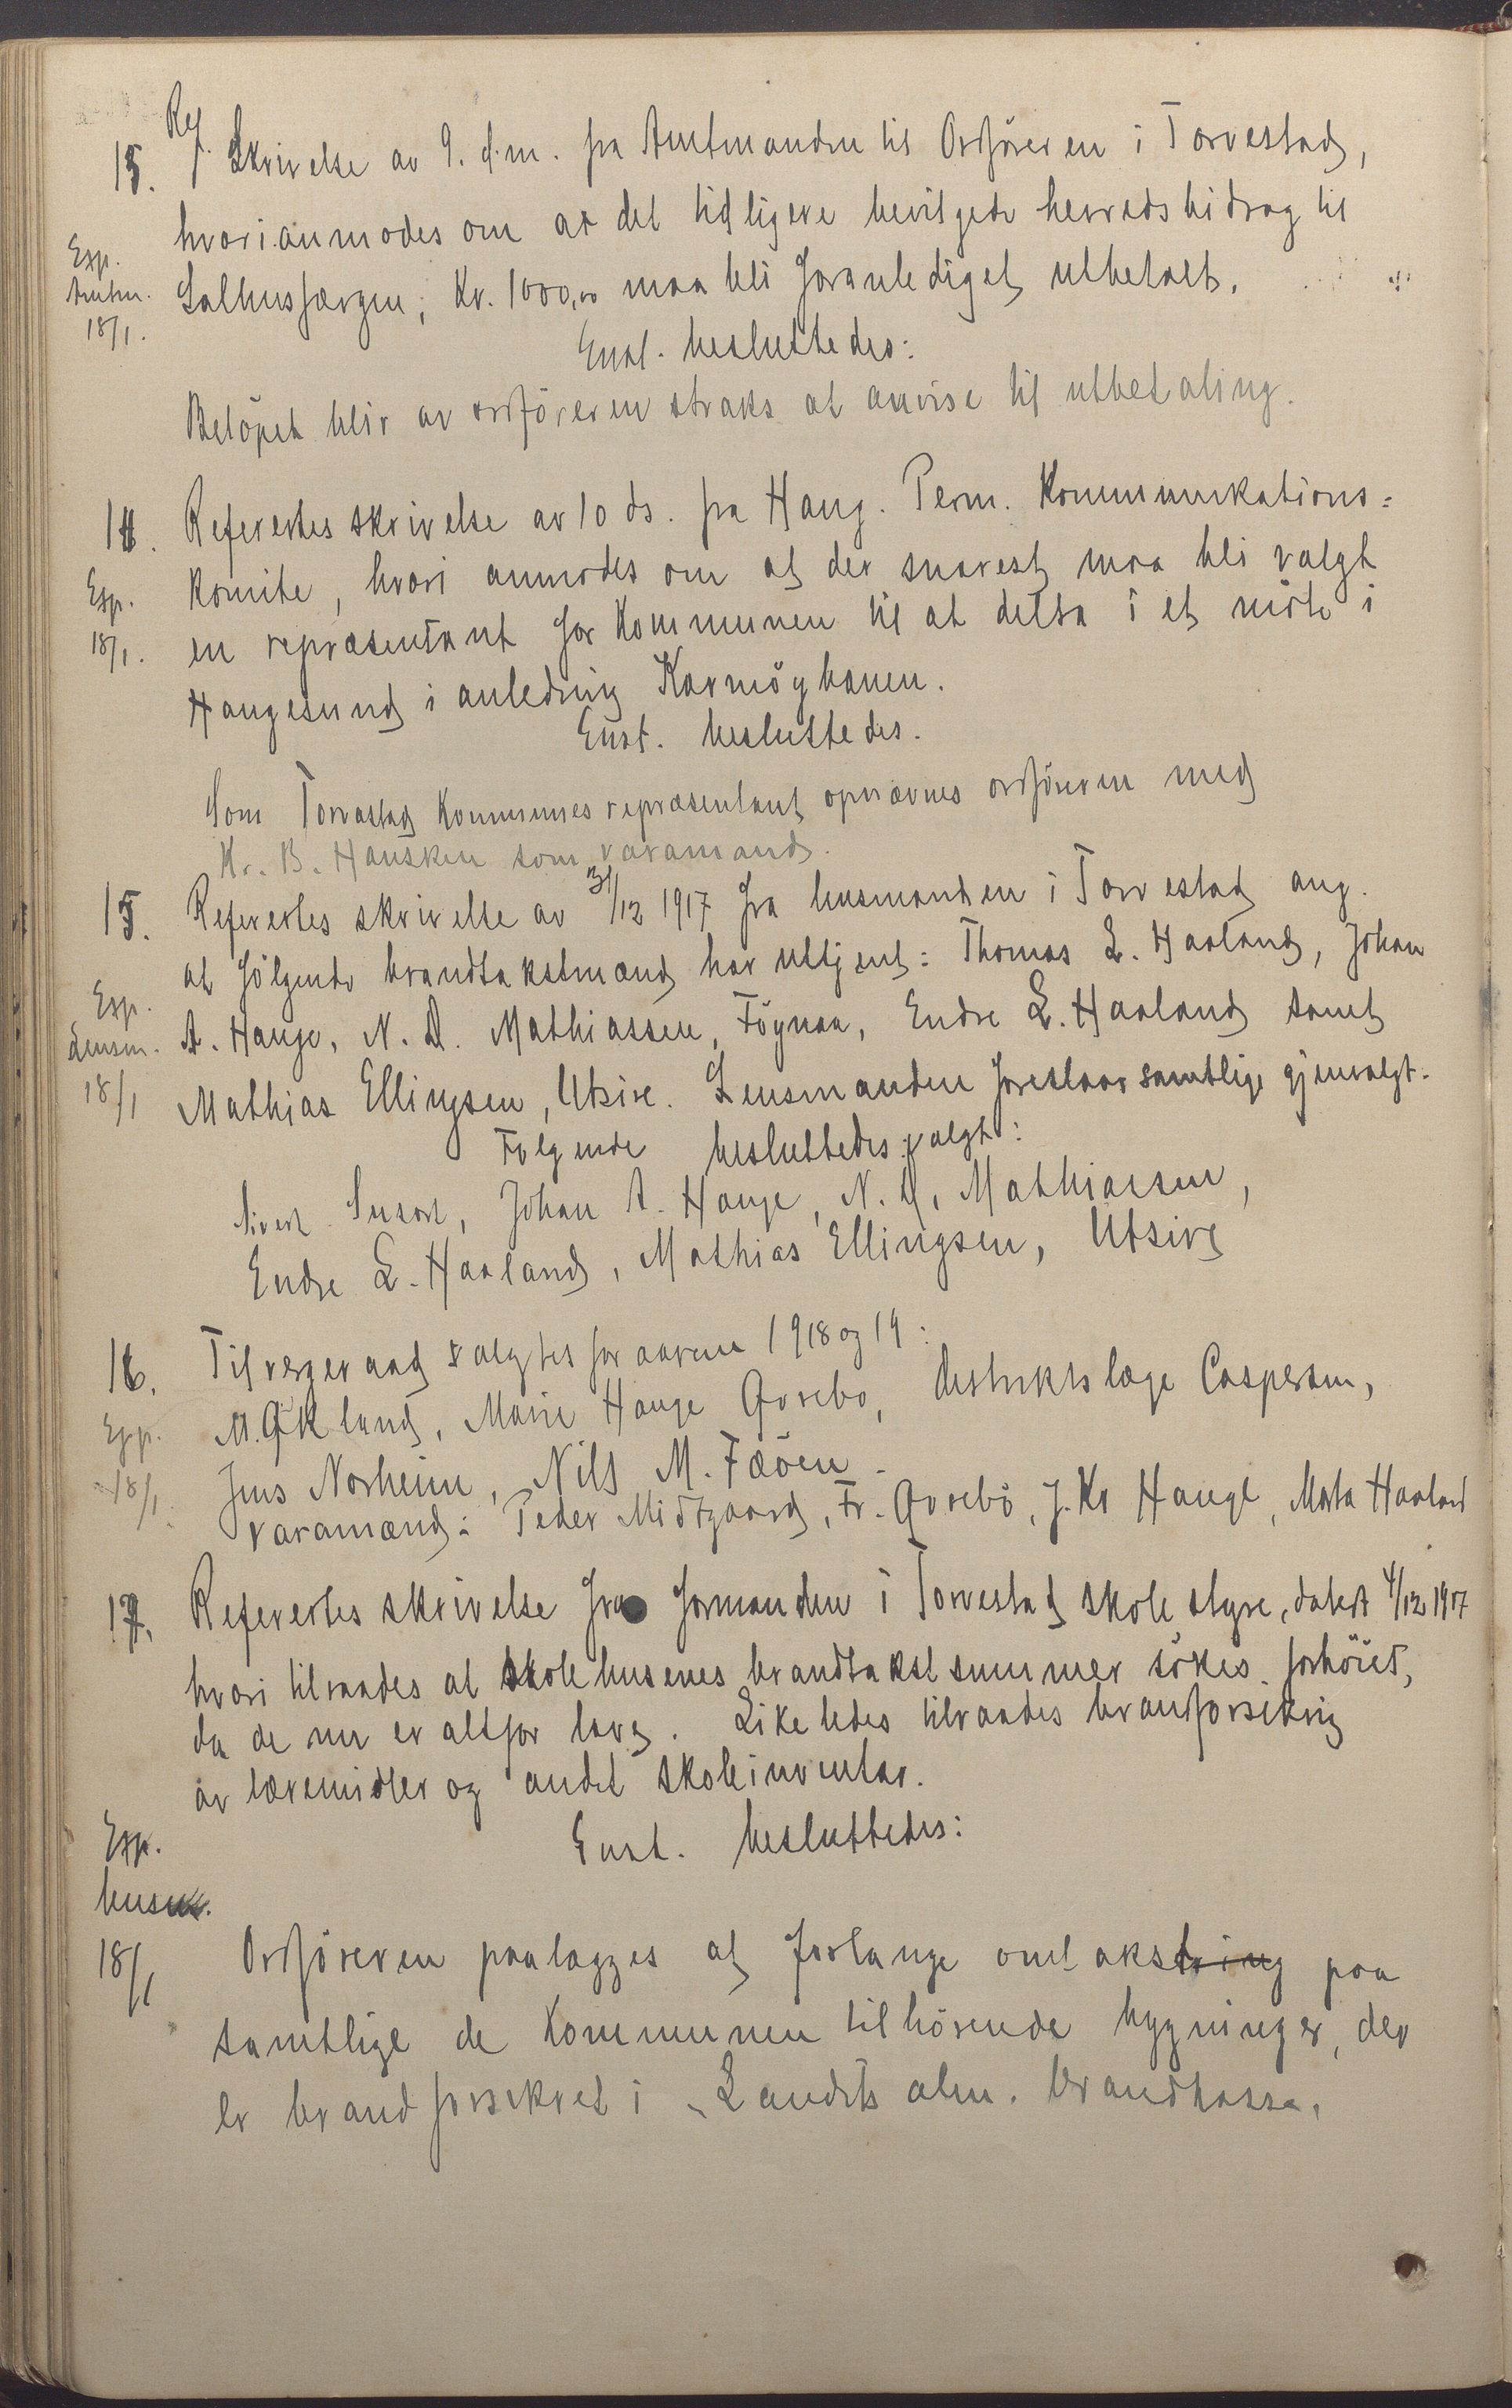 Ref.
15. Skrivelse av 9. d.m. fra Amtmanden til Ordföreren i Torvestad,
hvori anmodes om at det tidligere bevilgede herredsbidrag til
Exp. Amtm. 18/1.
Salhusfærgen, Kr. 1000,00 maa bli foranlediget utbetalt.
Enst. besluttedes:
Belöpet blir av ordföreren straks at anvise til utbetaling.
14. Refereertes skrivelse av 10 ds. fra Haug. Perm. Kommunikations=
Exp. 18/1.
komite, hvori anmodes om at der snarest maa bli valgt
en repræsentant for Kommunen til at delta i et möte i
Haugesund i anledning Karmöybanen.
Enst. besluttedes.
Som Torvastad Kommunes repræsentant opnævnes ordföreren med
Kr. B. Hausken som varamand.
15. Refereertes skrivelse av 31/12 1917 fra lensmanden i Torvestad ang.
at fölgende brandtakstmænd har uttjent: Thomas L. Haaland, Johan
Exp. Lensm. 18/1
A. Hauge, N. D. Mathiassen, Föynaa, Endre L. Haaland samt
Mathias Ellingsen, Utsire. Lensmanden foreslaar samtlige gjenvalgt.
Følgende besluttedes valgt:
Sivert Susort, Johan A. Hauge, N. D. Mathiassen,
Endre L. Haaland, Mathias Ellingsen, Utsire
16. Til vergeraad valgtes for aarene 1918 og 19:
Exp. 18/1.
M. Økland, Marie Hauge Qvrebo, distriktslæge Caspersen,
Jens Norheim, Nils M. Fæöen.
Varamænd: Peder Midtgaard, Fr. Qvrebö, J. Kr Hauge, Marta Haaland
17. Refereertes skrivelse fra formanden i Torvestad skolestyre, datert 4/12 1917
hvori tilraades at skolehusenes brandtakstsummer sökes forhöiet,
da de nu er altfor lave. Likeledes tilraades brandforsikring
av læremidler og andet skoleinventar.
Exp. lensm. 18/1
Enst. besluttedes:
Ordföreren paalægges at forlange omtakstring paa
samtlige de Kommunen tilhörende bygninger, der
er brandforsikret i „Landets alm. brandkasse.